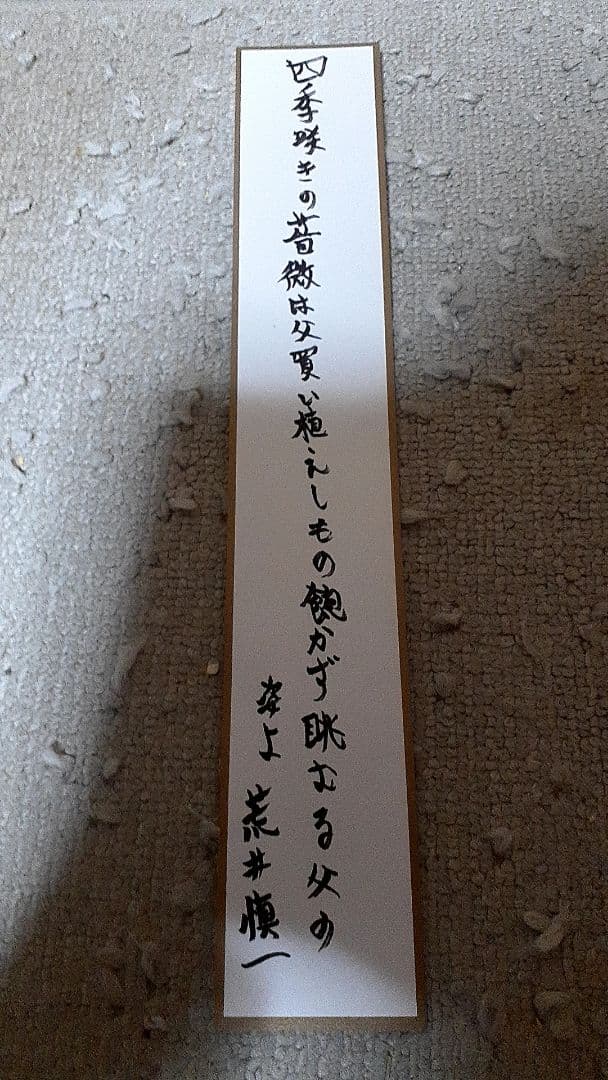 四季咲きの薔微は父買い植えしもの飽かず眺むる父の
姿よ 荒井慎一